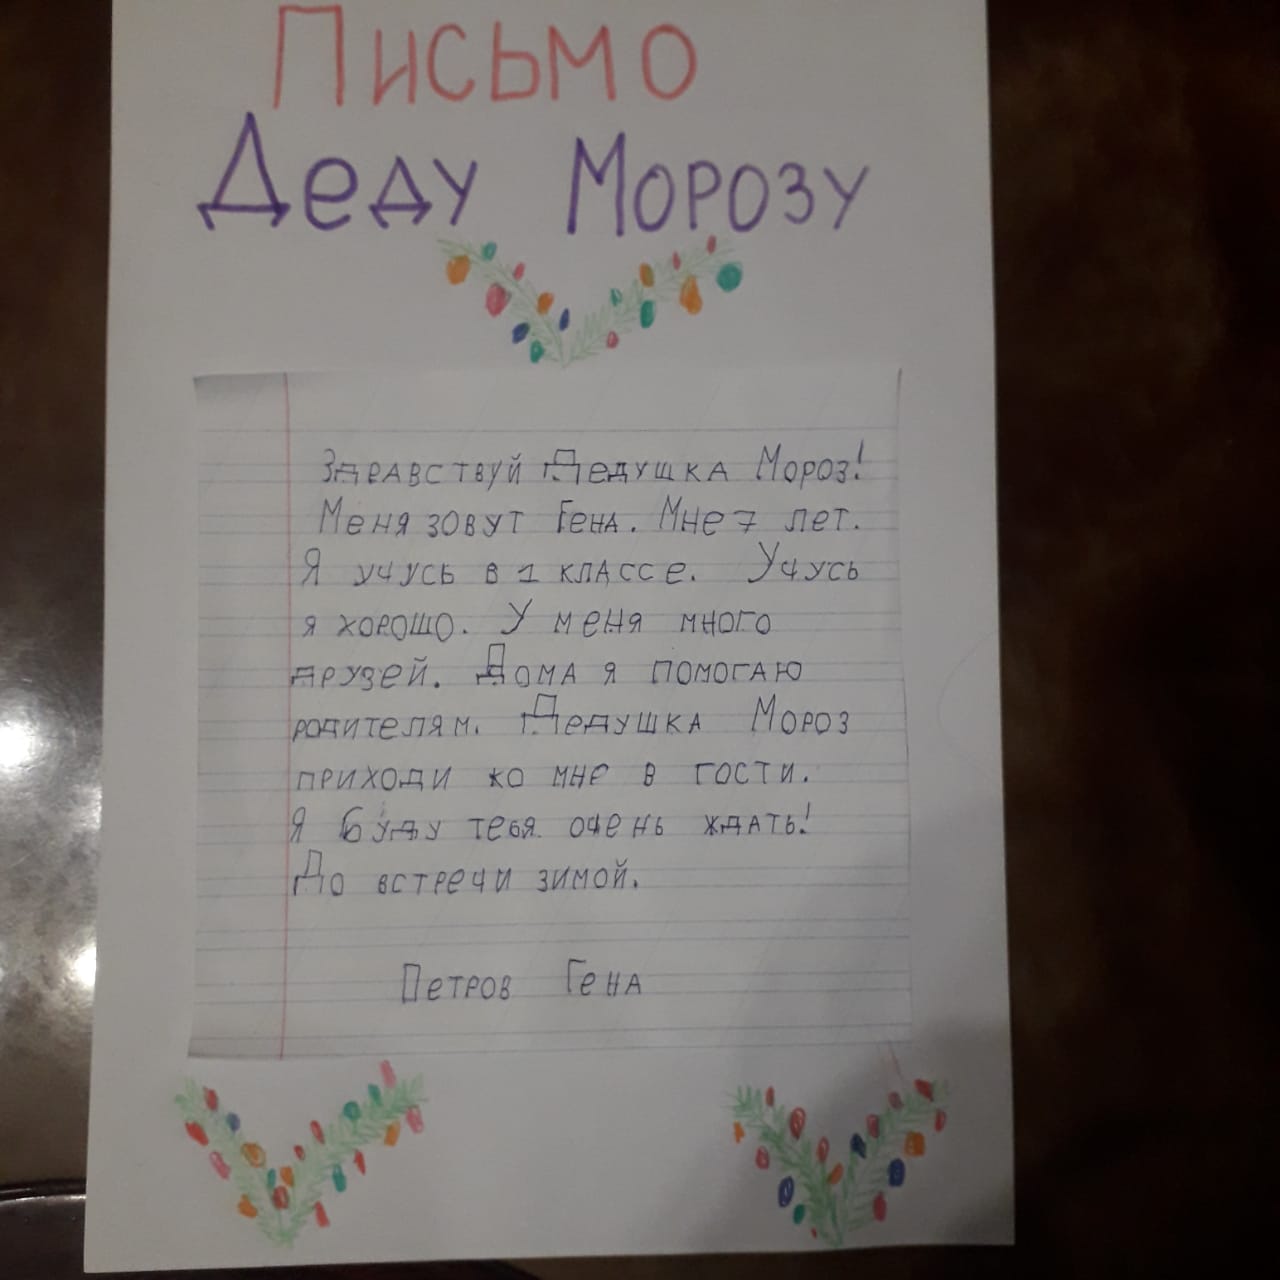 Письмо
Деду Морозу
Здравствуй Дедушка Мороз!
Меня зовут Гена. Мне 7 лет.
Я учусь в 1 классе. Учусь
я хорошо. У меня много
друзей. Дома я помогаю
родителям. Дедушка Мороз
приходи ко мне в гости.
Я буду тебя очень ждать!
До встречи зимой.
Петров Гена